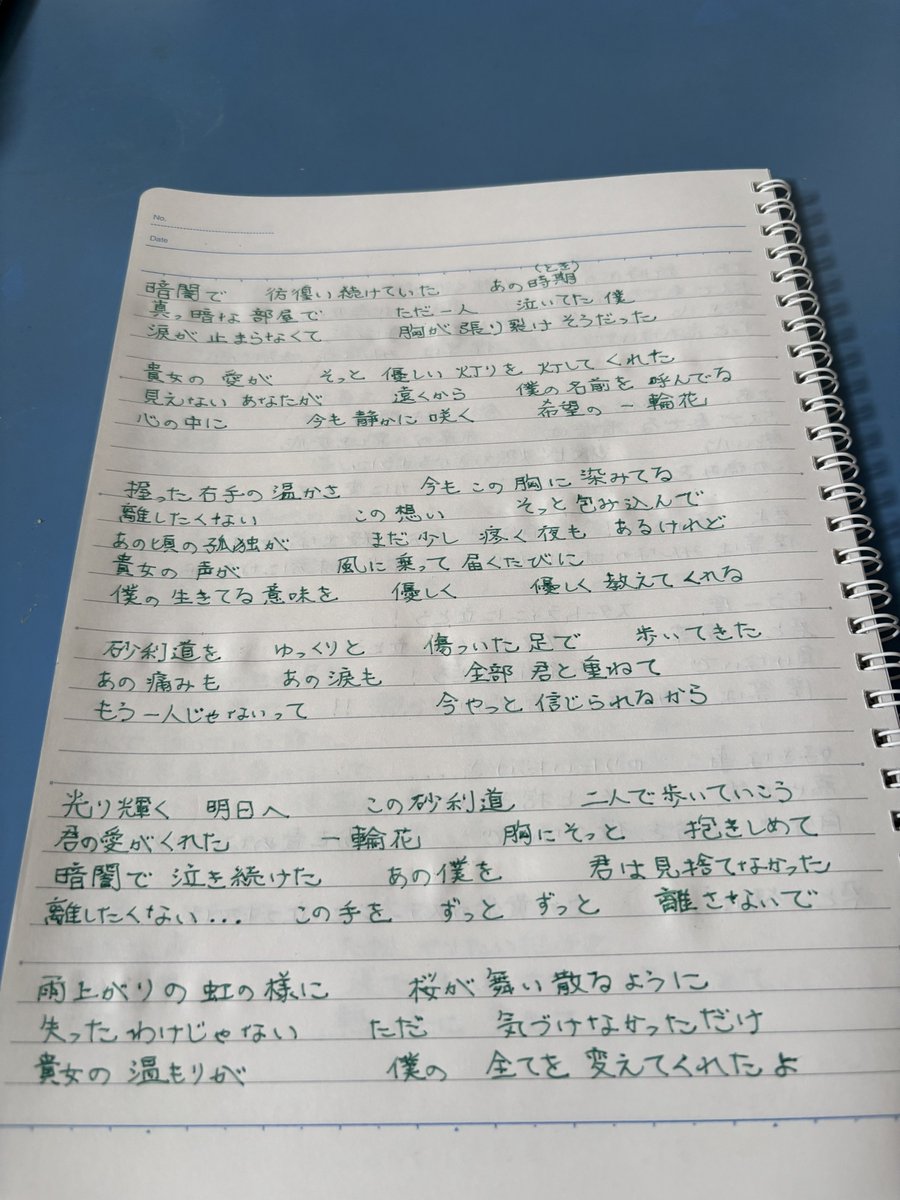 No.
Date
暗闇で　彷徨い続けていた　あの時期(とき)
真っ暗な部屋で　ただ一人　泣いてた僕
涙が止まらなくて　胸が張り裂けそうだった
貴女の愛が　そっと優しい灯りを灯してくれた
見えないあなたが　遠くから　僕の名前を呼んでる
心の中に　今も静かに咲く　希望の一輪花
握った右手の温かさ　今もこの胸に染みてる
離したくない　この想い　そっと包み込んで
あの頃の孤独が　まだ少し疼く夜も　あるけれど
貴女の声が　風に乗って届くたびに
僕の生きてる意味を　優しく　優しく教えてくれる
砂利道を　ゆっくりと　傷ついた足で　歩いてきた
あの痛みも　あの涙も　全部君と重ねて
もう一人じゃないって　今やっと信じられるから
光り輝く　明日へ　この砂利道　二人で歩いていこう
君の愛がくれた　一輪花　胸にそっと　抱きしめて
暗闇で泣き続けた　あの僕を　君は見捨てなかった
離したくない...　この手を　ずっと　ずっと　離さないで
雨上がりの虹の様に　桜が舞い散るように
失ったわけじゃない　ただ　気づけなかっただけ
貴女の温もりが　僕の　全てを変えてくれたよ